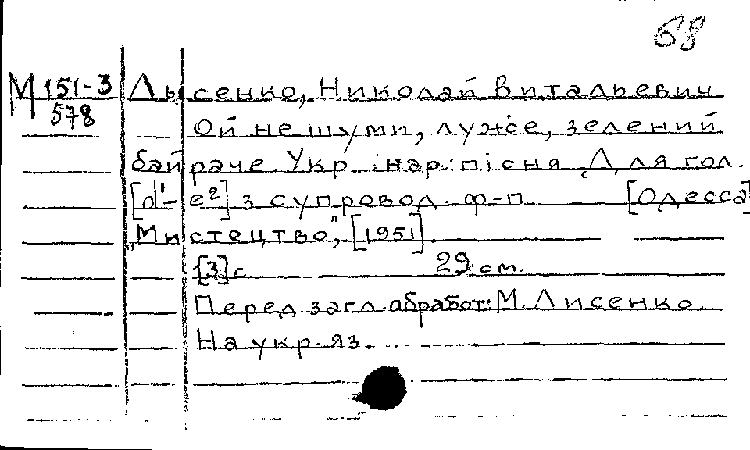 68
М 151-3
578
Лысенко, Николай Витальевич
Ой не шуми, луже, зелений
байраче Укр. нар. пісня Для гол.
[d¹-e²] з супровод. ф-п. [Одесса]
„Мистецтво", [1951].
[3] с. 29 см.
Перед загл. обработ: М. Лисенко
На укр. яз.